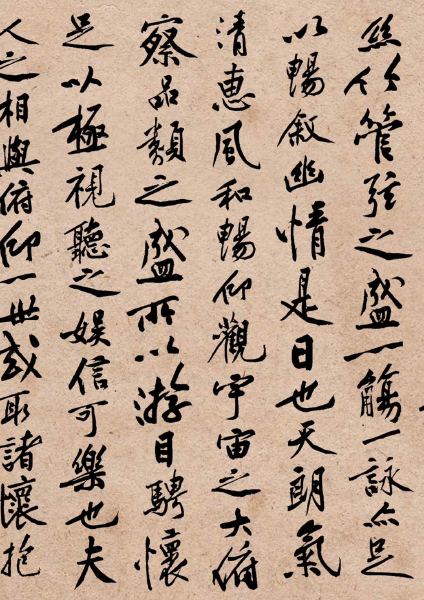 絲竹管弦之盛一觴一詠亦足
以暢叙幽情是日也天朗氣
清惠風和暢仰觀宇宙之大俯
察品類之盛所以遊目騁懷
足以極視聽之娛信可樂也夫
人之相與俯仰一世或取諸懷抱